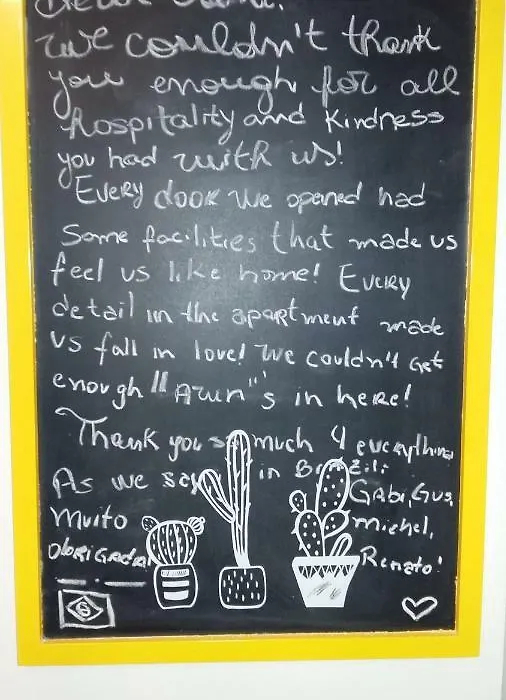 we couldn't thank
you enough for all
hospitality and kindness
you had with us!
Every door we opened had
Some facilities that made us
feel us like home! Every
detail in the apartment made
us fall in love! We couldn't get
enough "Awn"'s in here!
Thank you so much 4 everything
As we say in Brazil:
Muito
Obrigada!
Gabi, Gus,
Michel,
Renato!